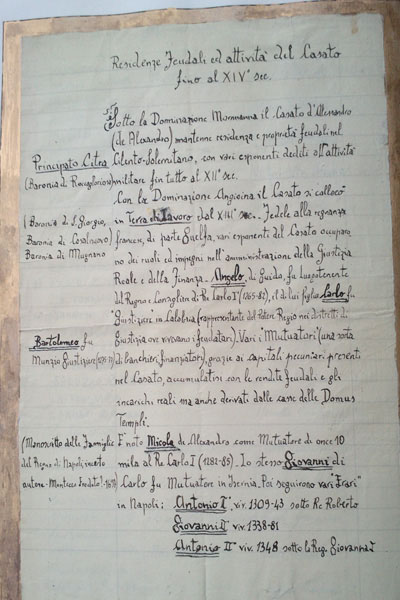 Residenze Feudali ed attività del Casato
fino al XIV° sec.
Sotto la Dominazione Normanna il Casato d'Alessandro
(de Alexandro) mantenne residenza e proprietà feudali nel
Principato Citra Cilento-Salernitano, con vari esponenti dediti all'attività
(Baronia di Roccagloriosa) militare fin tutto al XII° sec.
Con la Dominazione Angioina il Casato si collocò
(Baronia di S. Giorgio, in Terra di Lavoro dal XIII° sec. Fedele alla regnanza
Baronia di Casalnuovo) francese, di parte Guelfa, vari esponenti del Casato occuparo
Baronia di Mugnano no dei ruoli ed impegni nell'amministrazione della Giustizia
Reale e della Finanza. Angelo, di Guido, fu Luogotenente
del Regno e Consigliere di Re Carlo I° (1265-82), il di lui figlio Carlo fu
"Giustiziere" in Calabria (rappresentante del Potere Regio nei distretti di
Bartolomeo fu Giustizia ove vivevano i feudatari). Vari i "Mutuatori" (una sorta
Munzio Giustiziere di banchieri finanziatori), grazie ai capitali pecuniari presenti
nel Casato, accumulatisi con le rendite feudali e gli
incarichi reali ma anche derivati dalle case delle Domus
Templi.
(Manoscritto delle Famiglie E' noto Micola de Alexandro come Mutuatore di once 10
del Regno di Napoli mila al Re Carlo I (1282-83). Lo stesso Giovanni di
autore Carlo fu Mutuatore in Isernia. Poi seguirono vari "Frari"
in Napoli: Antonio I° viv. 1309-43 sotto Re Roberto
Giovanni II° viv. 1338-81
Antonio II° viv. 1348 sotto la Reg. Giovanna I